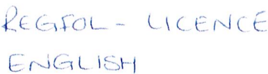 REGFOL - LICENCE
ENGLISH